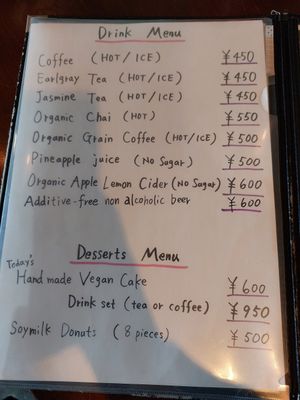 Drink Menu
Coffee (HOT/ICE) ¥450
Earlgray Tea (HOT/ICE) ¥450
Jasmine Tea (HOT/ICE) ¥450
Organic Chai (HOT) ¥550
Organic Grain Coffee (HOT/ICE) ¥500
Pineapple juice (No Sugar) ¥500
Organic Apple Lemon Cider (No Sugar) ¥600
Additive-free non alcoholic beer ¥600
Desserts Menu
Today's
Hand made Vegan Cake ¥600
Drink set (tea or coffee) ¥950
Soymilk Donats (8 pieces) ¥500